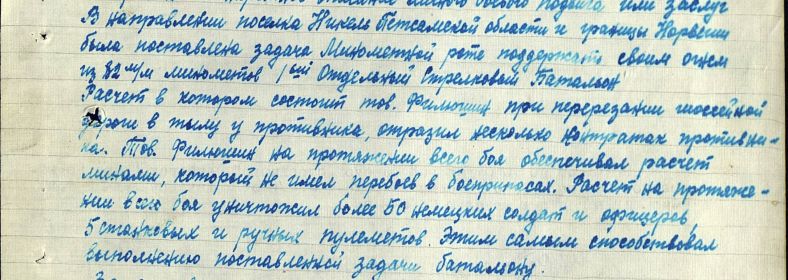 боевого подвига или заслуг
В направлении поселка Никель Петсамской области и границы Норвегии
была поставлена задача Минометной роте поддержать своим огнем
из 82 м/м минометов 1ый Отдельный Стрелковый Батальон
Расчет в котором состоит тов. Филюшин при перерезании шоссейной
дороги в тылу у противника, отразил несколько контратак противни-
ка. Тов. Филюшин на протяжении всего боя обеспечивал расчет
минами, который не имел перебоев в боеприпасах. Расчет на протяже-
нии всего боя уничтожил более 50 немецких солдат и офицеров,
5 станковых и ручных пулеметов. Этим самым способствовал
выполнению поставленной задачи батальону.